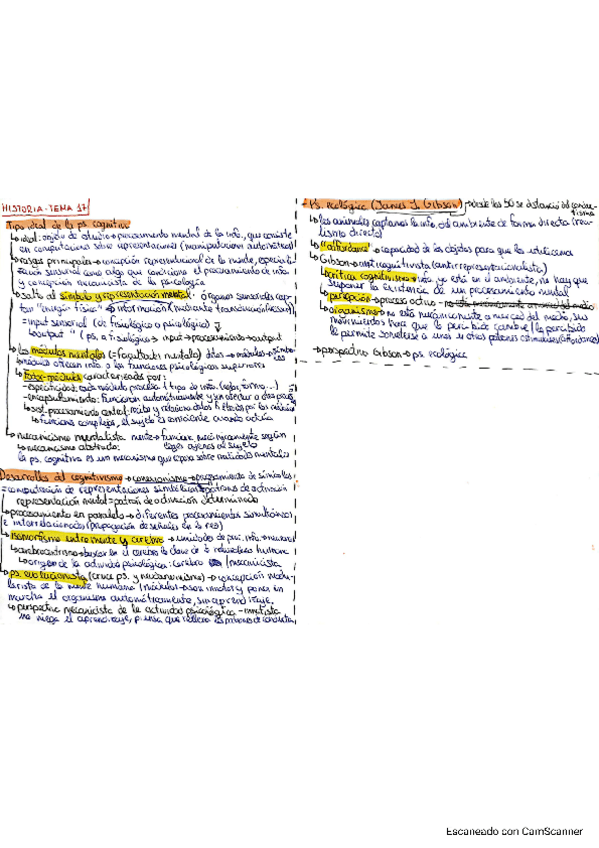 HISTORIA - TEMA 17
Tipo ideal de la ps. cognitiva
↳ ideal: objeto de estudio → procesamiento mental de la info., que consiste
en computaciones sobre representaciones (manipulaciones automáticas)
↳ rasgos principales → concepción representacional de la mente,
sensorial como algo que condiciona el procesamiento de info.
y concepción mecanicista de la psicología
↳ salto al símbolo y representación mental → órganos sensoriales cap-
tan "energía física" → información (mediante transducción)
= input sensorial (de fisiológico a psicológico)
↳ output " (ps. a fisiológico) → input → procesamiento → output
↳ los módulos mentales (= facultades mentales) → módulos →
ofrecen info. a las funciones psicológicas superiores
↳ Fodor → módulos caracterizados por:
- especificidad: cada módulo procesa 1 tipo de info. (color, forma...)
- encapsulamiento: funcionan automáticamente y sin afectar a otros
- sist. procesamiento central: recibe y relaciona datos ofrecidos por los módulos
↳ funciones complejas, el sujeto es consciente cuando actúa
↳ mecanicismo mentalista: mente → funciona mecánicamente según
↳ mecanicismo abstracto: leyes ajenas al sujeto
la ps. cognitiva es un mecanicismo que opera sobre realidades mentales
Desarrollos del cognitivismo → conexionismo → procesamiento de símbolos
= computación de representaciones simbólicas patrones de activación
representación mental = patrón de activación determinado
↳ procesamiento en paralelo → diferentes procesamientos simultáneos
e interrelacionados (propagación de señales en la red)
↳ isomorfismo entre mente y cerebro → unidades de proc. info. = neuronas
↳ cerebrocentrismo → buscar en el cerebro la clave de la naturaleza humana
↳ origen de la actividad psicológica: cerebro (mecanicista)
↳ ps. evolucionista (cruce ps. y neodarwinismo) → concepción modu-
larista de la mente humana (módulos → son innatos) y ponen en
marcha el organismo automáticamente, sin aprendizaje.
↳ perspectiva mecanicista de la actividad psicológica - innatista
No niega el aprendizaje, piensa que
- Ps. ecológica (James J. Gibson) → desde los 50 se distanció del conduc-
tismo
↳ los animales captamos la info. del ambiente de forma directa (rea-
lismo directo)
↳ "affordance" → capacidad de los objetos para que los utilicemos
↳ Gibson → anticognitivista (antirrepresentacionalista)
↳ crítica cognitivismo → info. ya está en el ambiente, no hay que
suponer la existencia de un procesamiento mental
↳ percepción → proceso activo
↳ organismo → no está mecánicamente a merced del medio, sus
movimientos hace que lo percibido cambie (lo percibido
le permite someterse a unos u otros patrones estimulares (affordances)
→ perspectiva Gibson → ps. ecológica
Escaneado con CamScanner